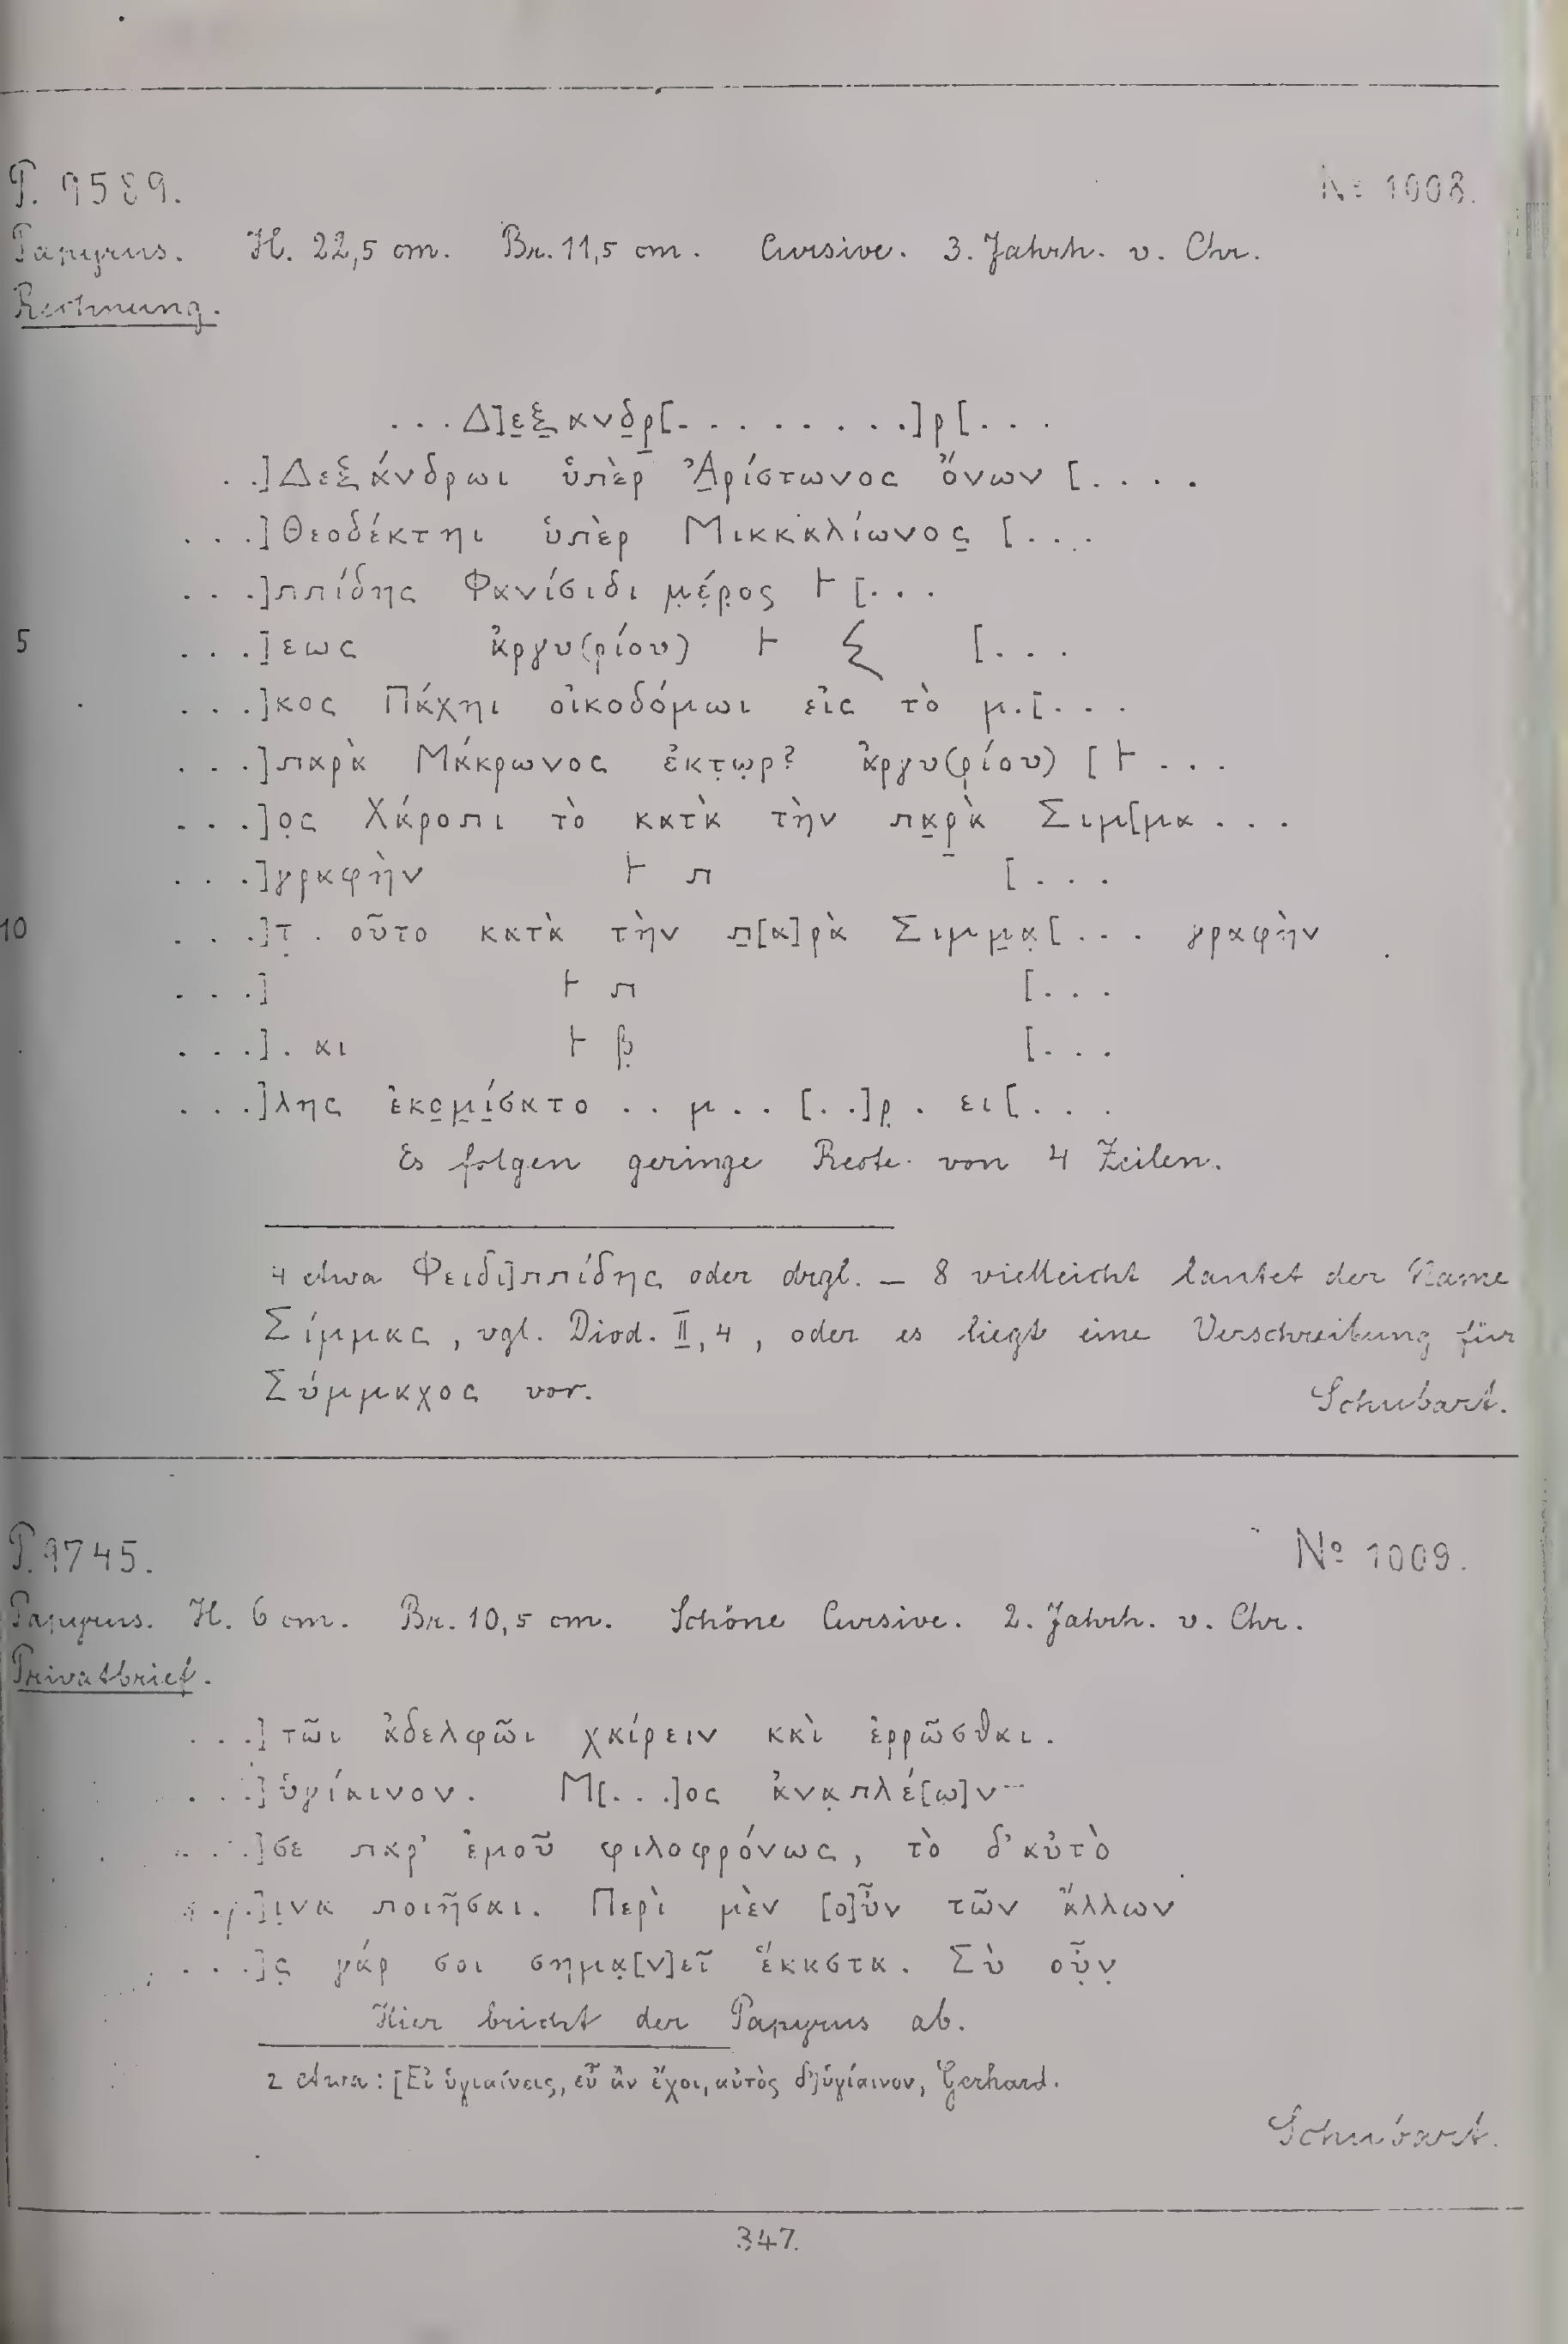 P. 9589. No 1008.
Papyrus. H. 22,5 cm. Br. 11,5 cm. Cursive. 3. Jahrh. v. Chr.
Rechnung.
...Δ]ε̣ξ̣ανδ̣ρ̣[.........]ρ[...
..]Δεξάνδρωι ὑπὲρ Ἀ̣ρίστωνος ὄνων [....
...]Θεοδέκτηι ὑπὲρ Μικκαλίωνος̣ [...
...]ππίδης Φανίσιδι μ̣έ̣ρ̣ος ⊢ [...
5 ...]εως ἀργυ(ρίου) ⊢ ξ [...
...]κος Πάχηι οἰκοδόμωι εἰς τὸ μ.[...
...]παρὰ Μάκρωνος ἑκτ̣ω̣ρ? ἀργυ(ρίου) [⊢ ...
...]ο̣ς Χάροπι τὸ κατὰ τὴν πα̣ρ̣ὰ Σιμ[μα...
...]γραφὴν ⊢ π [...
10 ...]τ̣. οῦτο κατὰ τὴν π̣[α]ρὰ Σιμμ̣α̣[... γραφὴν
...] ⊢ π [...
...]. αι ⊢ β̣ [...
...]λης ἐκο̣μ̣ί̣σατο .. μ.. [..]ρ̣. ει[...
Es folgen geringe Reste von 4 Zeilen.
4 etwa Φειδι]ππίδης oder drgl. – 8 vielleicht lautet der Name
Σίμμας, vgl. Diod. II, 4, oder es liegt eine Verschreibung für
Σύμμαχος vor. Schubart.
P. 9745. No 1009.
Papyrus. H. 6 cm. Br. 10,5 cm. Schöne Cursive. 2. Jahrh. v. Chr.
Privatbrief.
...] τῶι ἀδελφῶι χαίρειν καὶ ἐρρῶσθαι.
...] ὑγίαινον. Μ[...]ος ἀνα̣πλέ[ω]ν
...]σε παρ' ἐμοῦ φιλοφρόνως, τὸ δ' αὐτὸ
]ι̣να ποιῆσαι. Περὶ μὲν [ο]ὖν τῶν ἄλλων
...]ς̣ γάρ σοι σημα̣[ν]εῖ ἕκαστα. Σὺ οὖ̣ν̣
Hier bricht der Papyrus ab.
2 etwa: [Εἰ ὑγιαίνεις, εὖ ἂν ἔχοι, αὐτὸς δ'] ὑγίαινον, Gerhard.
Schubart.
347.